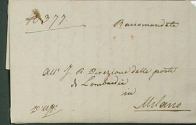 N° 377
Raccomandata
All' I. R. Direzione delle poste
di Lombardia
in
Milano